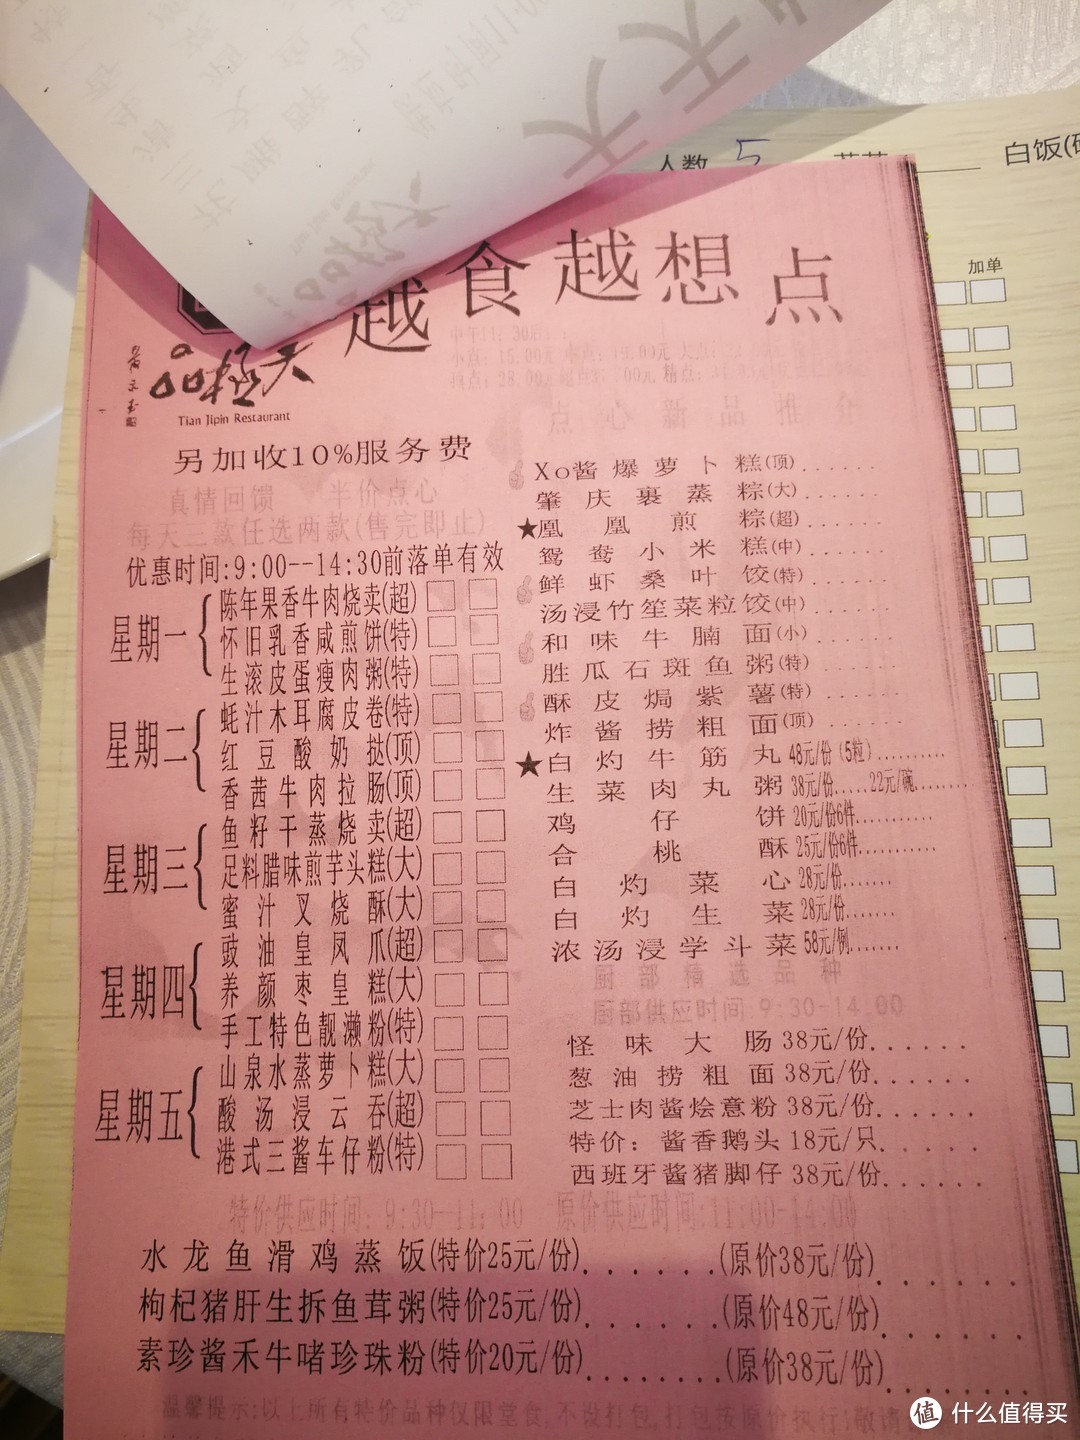 天天
人数 5
白饭(
加单
越食越想点
品极天
Tian Jipin Restaurant
中午11:30后:
点心新品推介
另加收10%服务费
真情回馈 半价点心
每天三款任选两款(售完即止)
优惠时间:9:00--14:30前落单有效
星期一
陈年果香牛肉烧卖(超)
怀旧乳香咸煎饼(特)
生滚皮蛋瘦肉粥(特)
星期二
蚝汁木耳腐皮卷(特)
红豆酸奶挞(顶)
香茜牛肉拉肠(顶)
星期三
鱼籽干蒸烧卖(超)
足料腊味煎芋头糕(大)
蜜汁叉烧酥(大)
星期四
豉油皇凤爪(超)
养颜枣皇糕(大)
手工特色靓濑粉(特)
星期五
山泉水蒸萝卜糕(大)
酸汤浸云吞(超)
港式三酱车仔粉(特)
Xo酱爆萝卜糕(顶)......
肇庆裹蒸粽(大)......
★凰凰煎粽(超)......
鸳鸯小米糕(中)......
鲜虾桑叶饺(特)......
汤浸竹笙菜粒饺(中)......
和味牛腩面(小)......
胜瓜石斑鱼粥(特)......
酥皮焗紫薯(特)......
炸酱捞粗面(顶)......
★白灼牛筋丸48元/份(5粒)..........
生菜肉丸粥38元/份.....22元/碗........
鸡仔饼20元/份6件...........
合桃酥25元/份6件...........
白灼菜心28元/份.......
白灼生菜28元/份.......
浓汤浸学斗菜58元/例.......
厨部精选品种
厨部供应时间:9:30-14.00
怪味大肠38元/份......
葱油捞粗面38元/份......
芝士肉酱烩意粉38元/份......
特价：酱香鹅头18元/只......
西班牙酱猪脚仔38元/份......
特价供应时间:9:30-11:00 原价供应时间:11:00-14:00
水龙鱼滑鸡蒸饭(特价25元/份).......(原价38元/份).......
枸杞猪肝生拆鱼茸粥(特价25元/份).......(原价48元/份).......
素珍酱禾牛啫珍珠粉(特价20元/份).......(原价38元/份).......
温馨提示:以上所有特价品种仅限堂食,不设打包,打包按原价执行!敬请
值 什么值得买